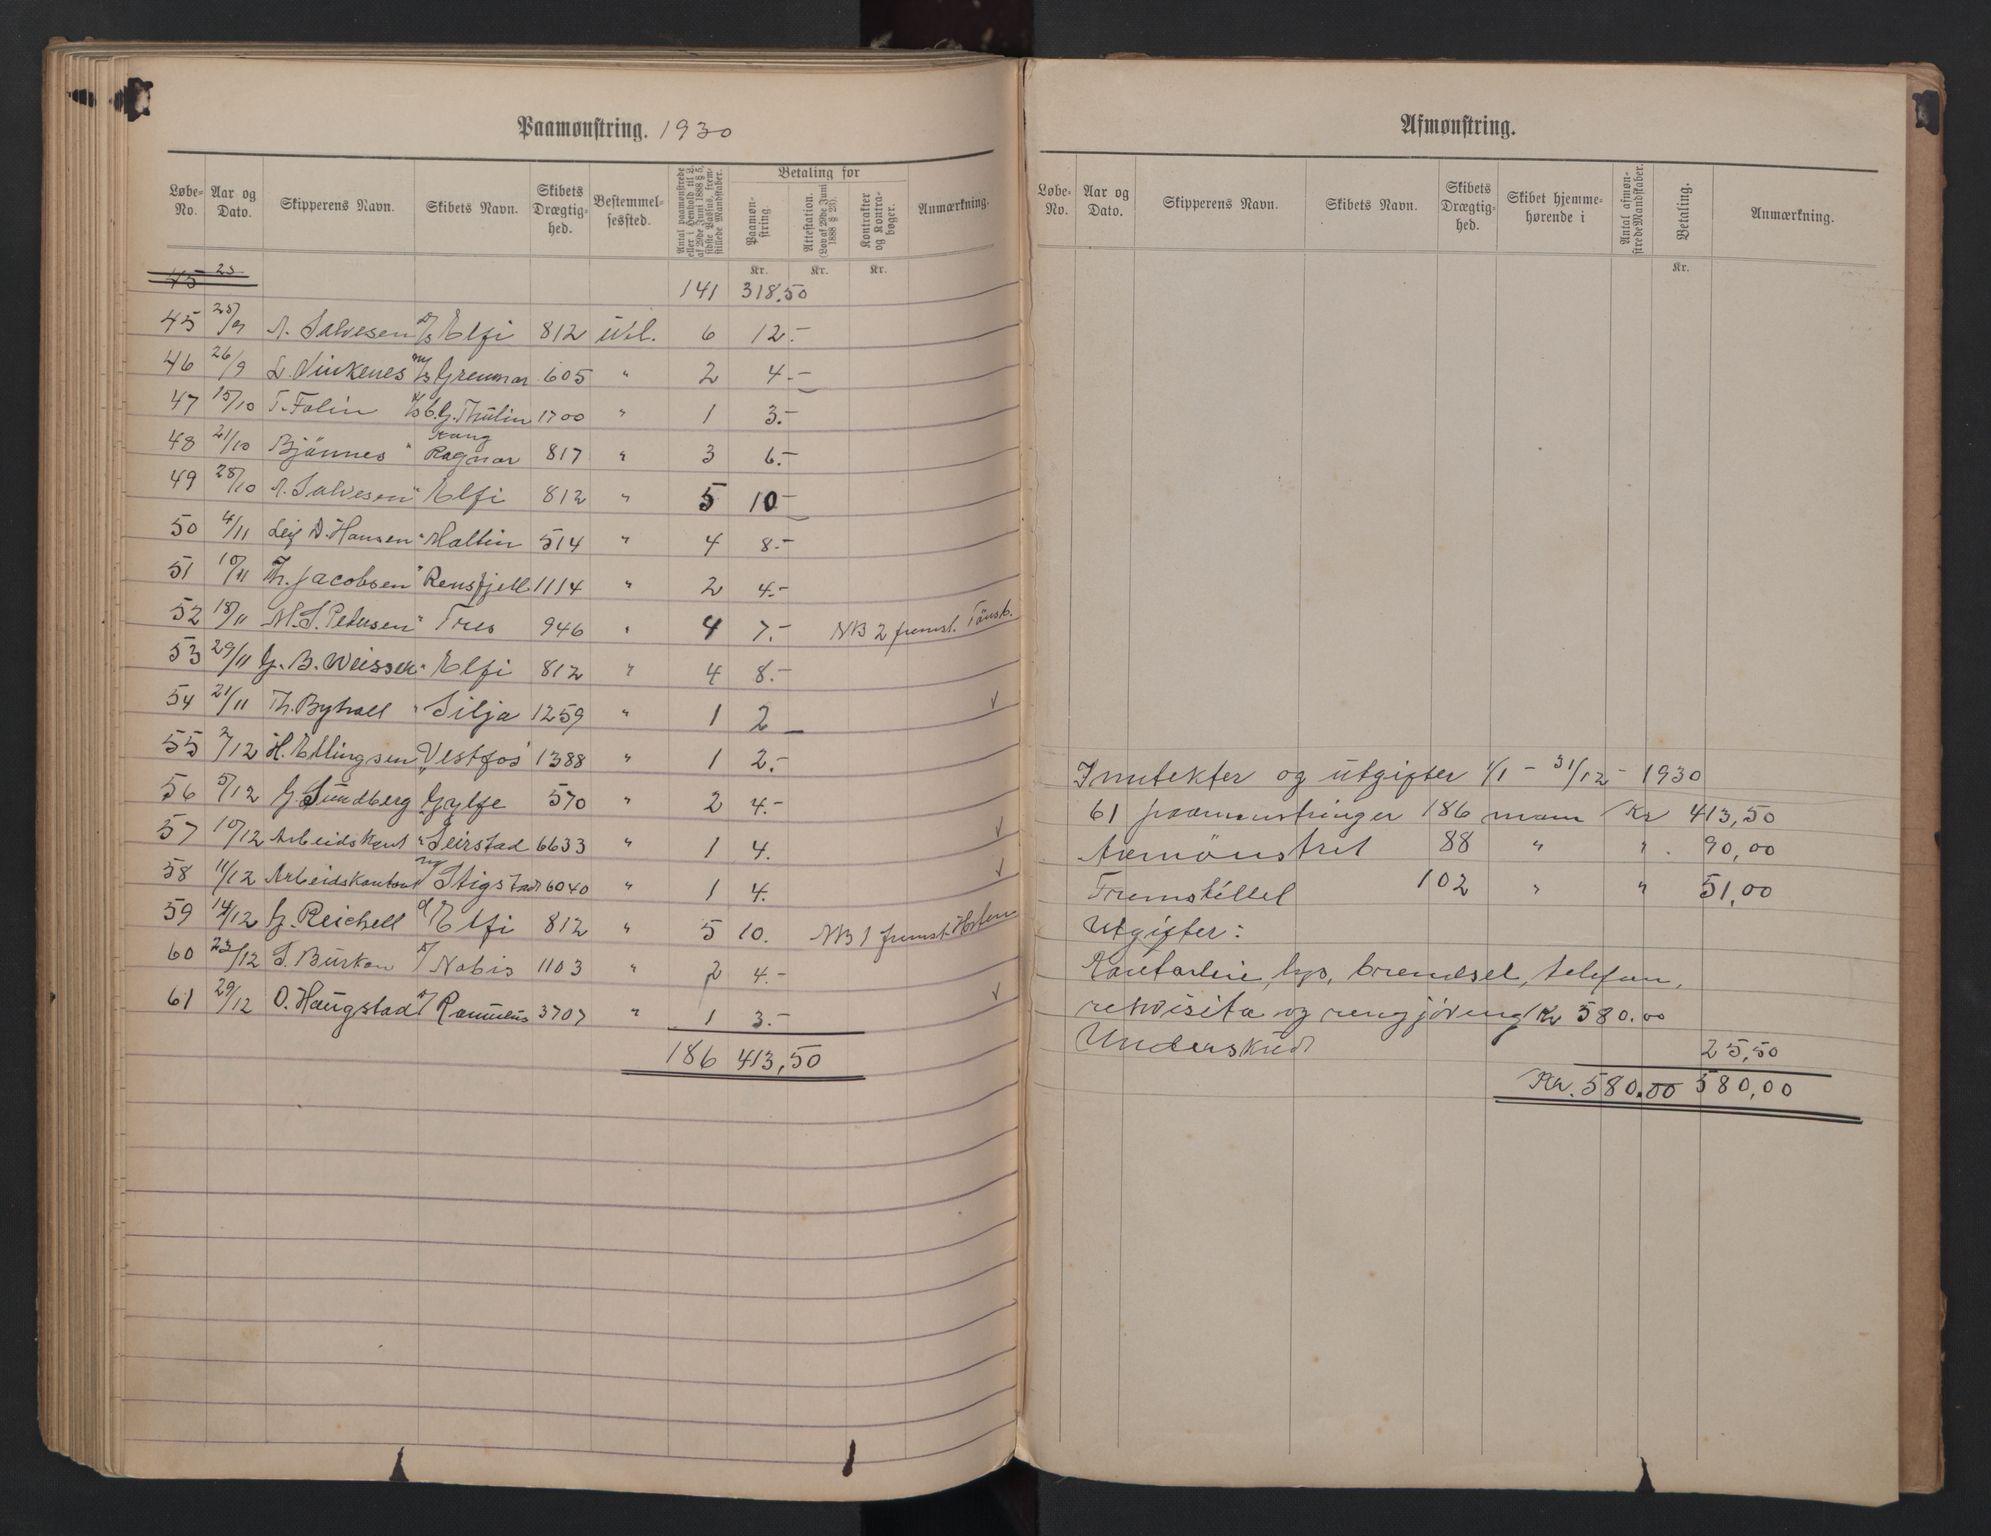 Paamønstring. 1930
Løbe-No. Aar og Dato. Skipperens Navn. Skibets Navn. Skibets Drægtig-hed. Bestemmel-sessted. Antal paamønstrede eller i Henhold til L. af 29de Juni 1888 § 5, sidste Passus, frem-stillede Mandskaber. Betaling for Paamøn-string Attestation. (Lov af 29de Juni 1888 § 23). Kontrakter og Kontra-bøger. Anmærkning.
Kr. Kr. Kr.
45 25
141 318.50
45 25/9 A. Salvesen D/S Elfi 812 utl. 6 12.-
46 26/9 L. Vinkenes M/S Grenmar 605 " 2 4.-
47 15/10 T. Folin D/S C.G. Thulin 1700 " 1 3.-
48 21/10 Bjönnes " Kong Ragnar 817 " 3 6.-
49 28/10 A. Salvesen " Elfi 812 " 5 10-
50 4/11 Leif D. Hansen " Maltin 514 " 4 8.-
51 10/11 Th. Jacobsen " Rensfjell 1114 " 2 4.-
52 18/11 M. S. Petersen " Tres 946 " 4 7.- NB 2 fremst. Tönsb.
53 29/11 G. B. Weissek " Elfi 812 " 4 8.-
54 21/11 Th. Byhall " Silja 1259 " 1 2
55 2/12 H. Ellingsen " Vestfos 1388 " 1 2.-
56 5/12 G. Sundberg " Gylfe 570 " 2 4.-
57 10/12 Arbeidskont " Seirstad 6633 " 1 4.
58 11/12 Arbeidskontor M/S Stigstad 6040 " 1 4.
59 14/12 G. Reichell D/ Elfi 812 " 5 10. NB 1 fremst. Horten
60 23/12 S. Burkon D/ Nobis 1103 " 2 4.-
61 29/12 O. Haugstad D/ Romulus 3707 " 1 3.-
186 413,50
Afmønstring.
Løbe-No. Aar og Dato. Skipperens Navn. Skibets Navn. Skibets Drægtig-hed. Skibet hjemme-hørende i Antal afmøn-strede Mandskaber. Betaling. Anmærkning.
Kr.
Inntekter og utgifter 1/1 - 31/12 - 1930
61 paamönstringer 186 mann Kr 413,50
Avmönstret 88 " " 90,00
Fremstillet 102 " " 51,00
Utgifter:
Kontorleie, lys, brendsel, telefon,
rekvisita og rengjöring Kr 580.00
Underskud 25,50
Kr. 580.00 580,00